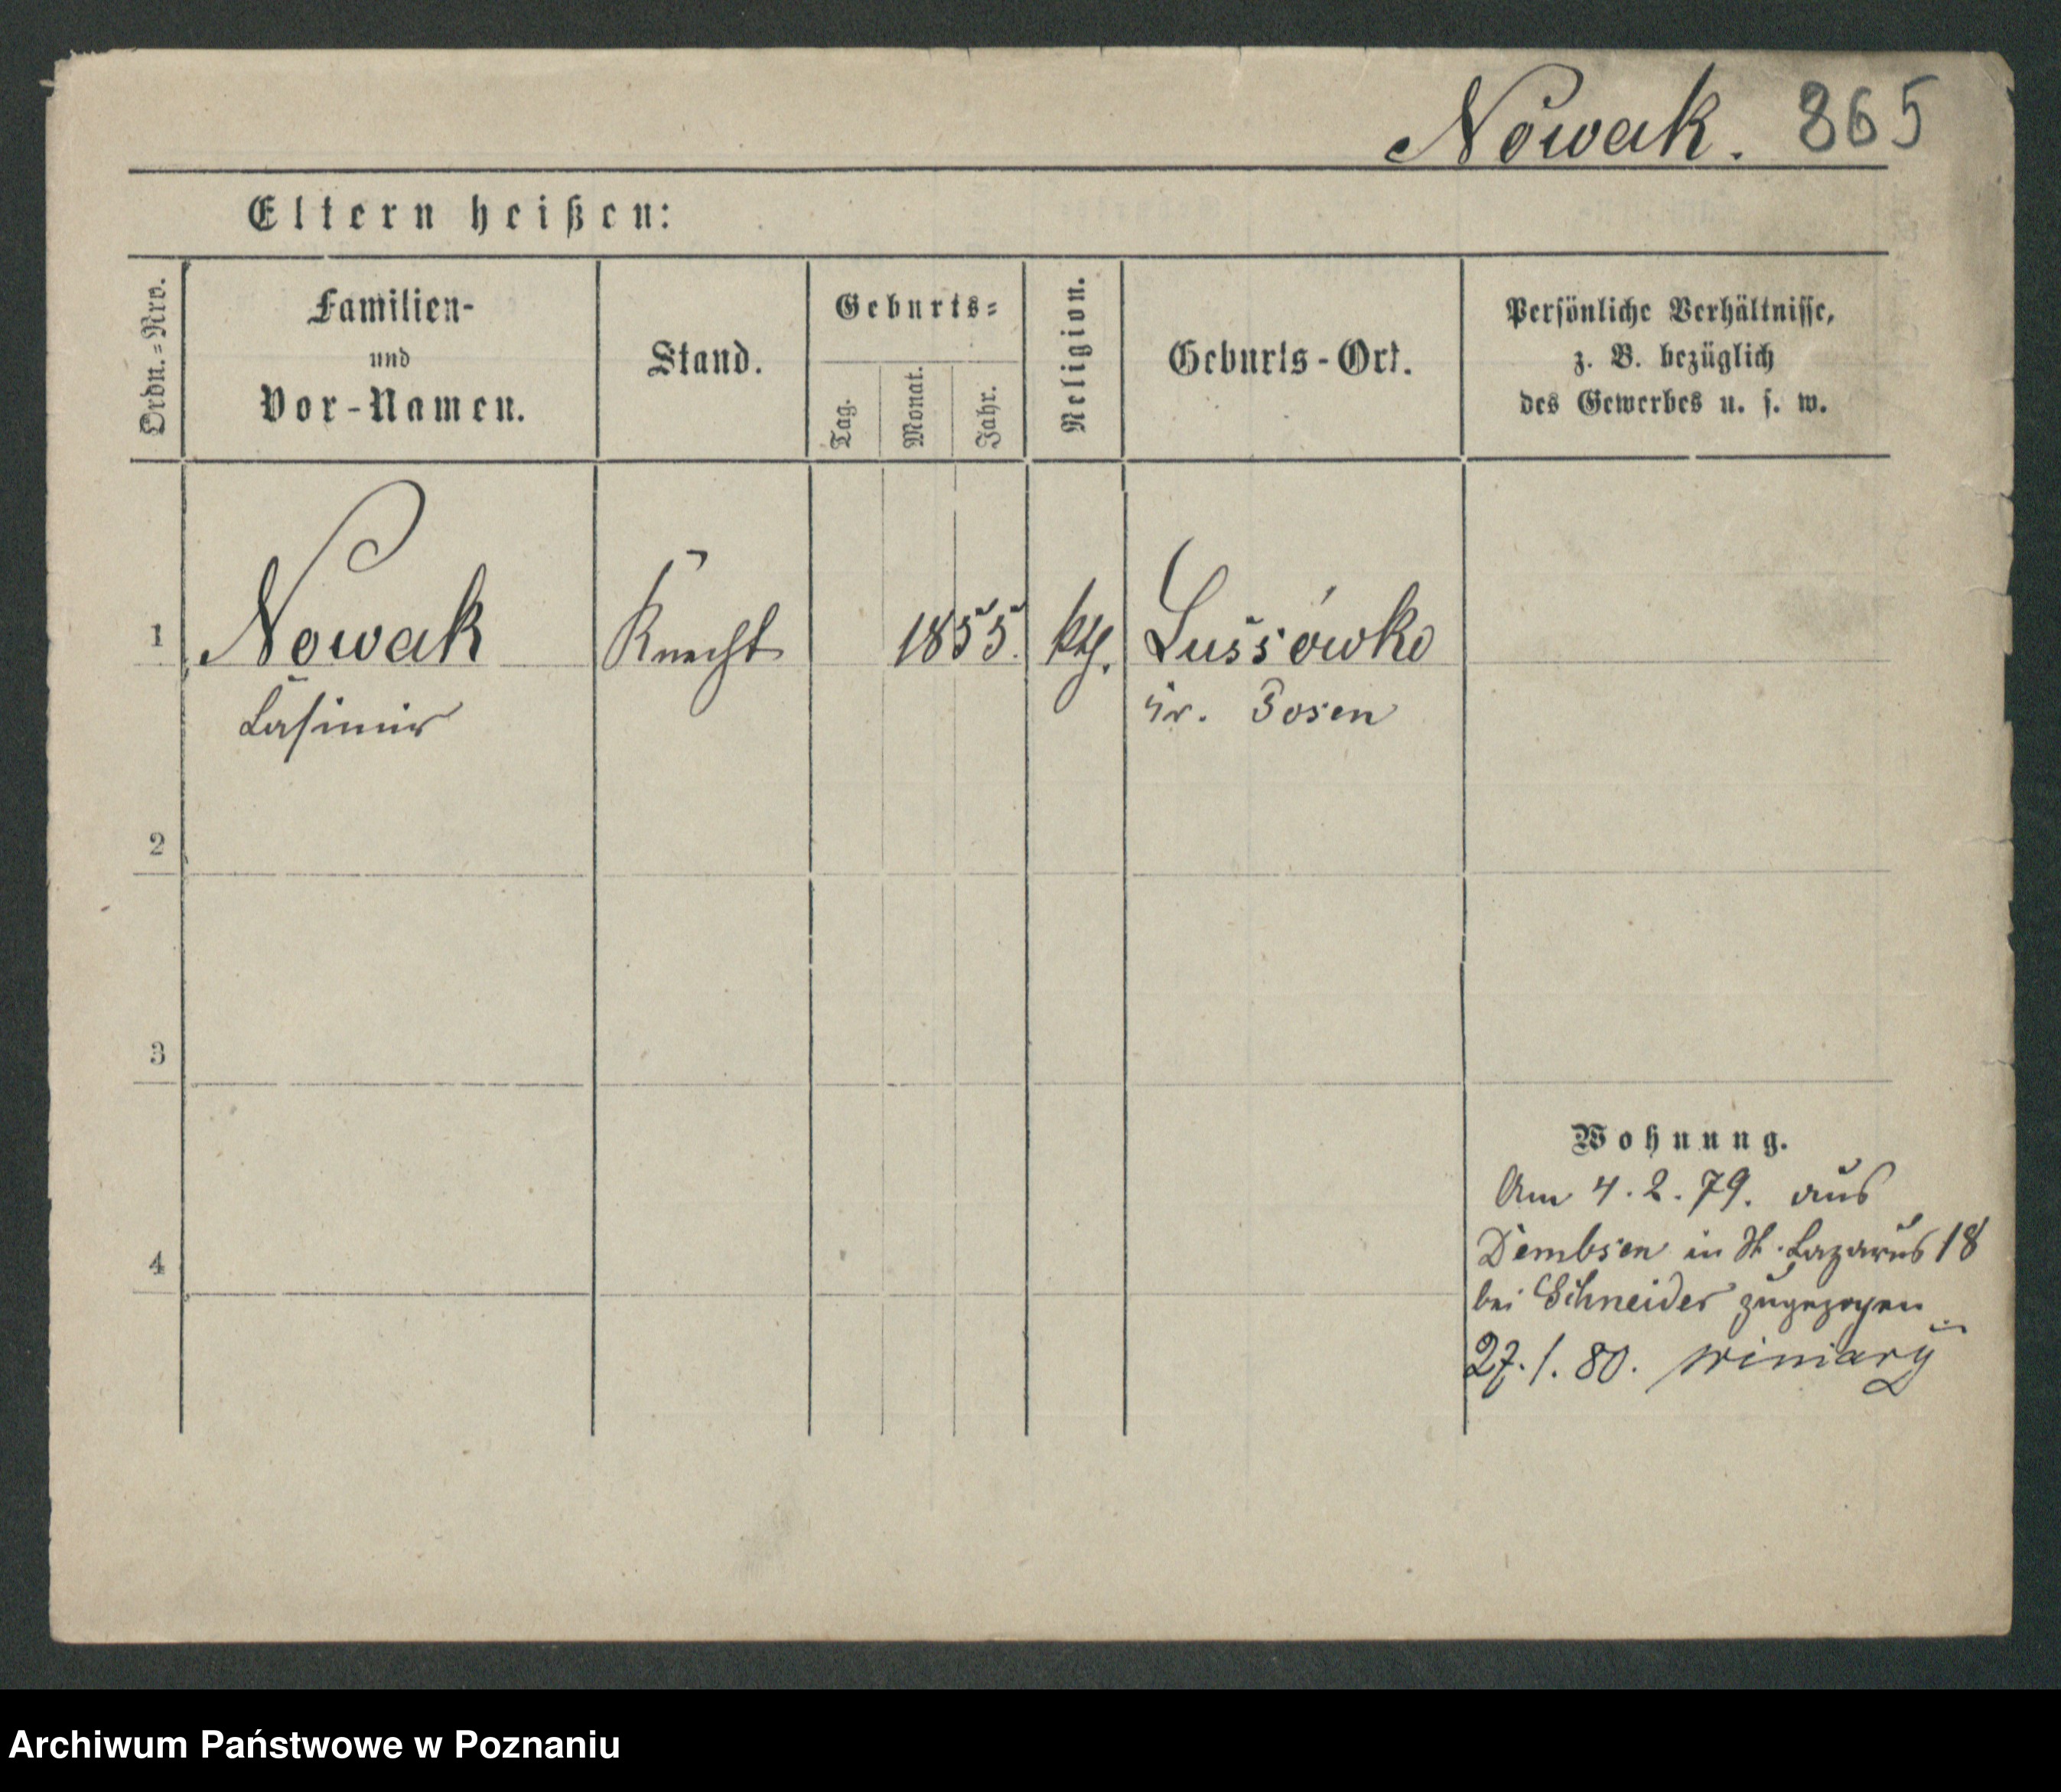 Nowak. 865
Eltern heißen:
Ordn.=Nro.
Familien-
und
Vor-Namen.
Stand.
Geburts=
Tag.
Monat.
Jahr.
Religion.
Geburts-Ort.
Persönliche Verhältnisse,
z. B. bezüglich
des Gewerbes u. s. w.
1 Nowak Knecht 1855. kth. Lussówko
Casimir Kr. Posen
2
3
4
Wohnung.
Am 4.2.79. aus
Dembsen in St. Lazarus 18
bei Schneider zugezogen
27./1. 80. Winiary
Archiwum Państwowe w Poznaniu